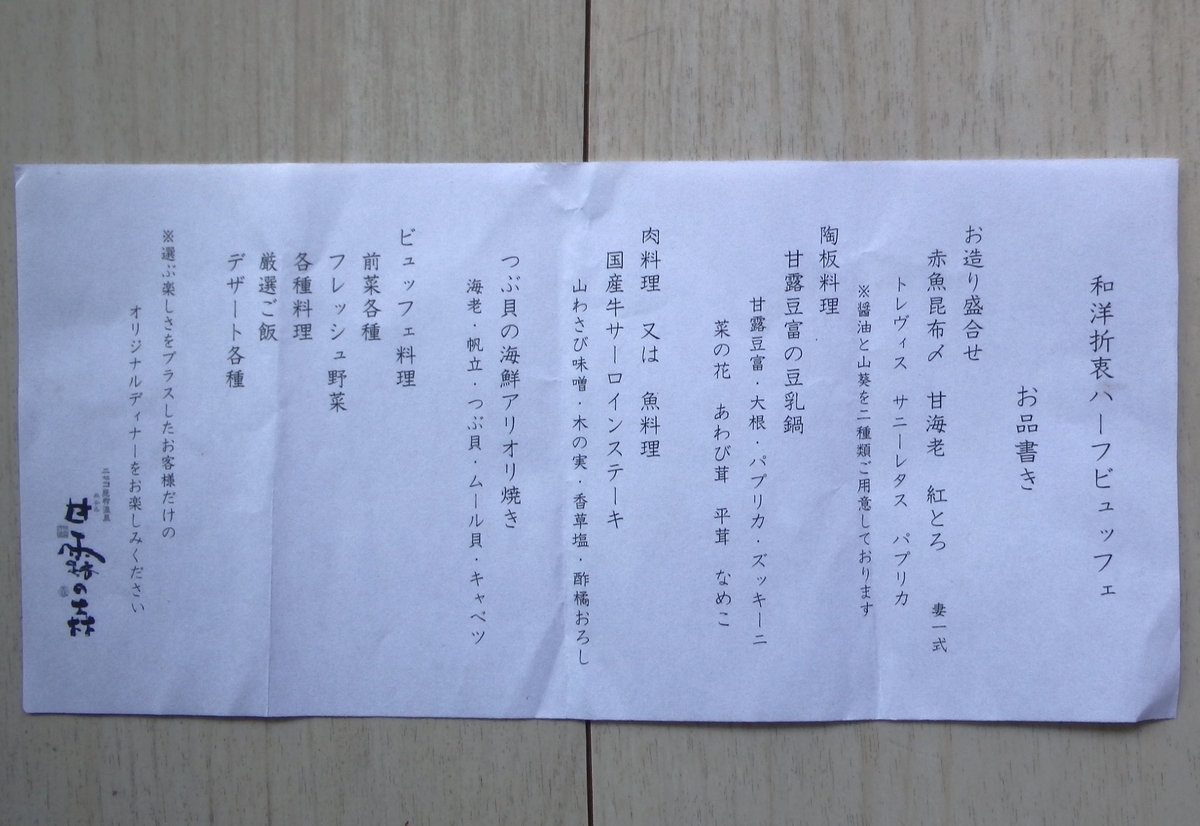 和洋折衷ハーフビュッフェ
お品書き
お造り盛合せ
赤魚昆布〆　甘海老　紅とろ　妻一式
トレヴィス　サニーレタス　パプリカ
※醤油と山葵を二種類ご用意しております
陶板料理
甘露豆富の豆乳鍋
甘露豆富・大根・パプリカ・ズッキーニ
菜の花　あわび茸　平茸　なめこ
肉料理　又は　魚料理
国産牛サーロインステーキ
山わさび味噌・木の実・香草塩・酢橘おろし
つぶ貝の海鮮アリオリ焼き
海老・帆立・つぶ貝・ムール貝・キャベツ
ビュッフェ料理
前菜各種
フレッシュ野菜
各種料理
厳選ご飯
デザート各種
※選ぶ楽しさをプラスしたお客様だけの
オリジナルディナーをお楽しみください
ニセコ昆布温泉
ホテル
甘露の森